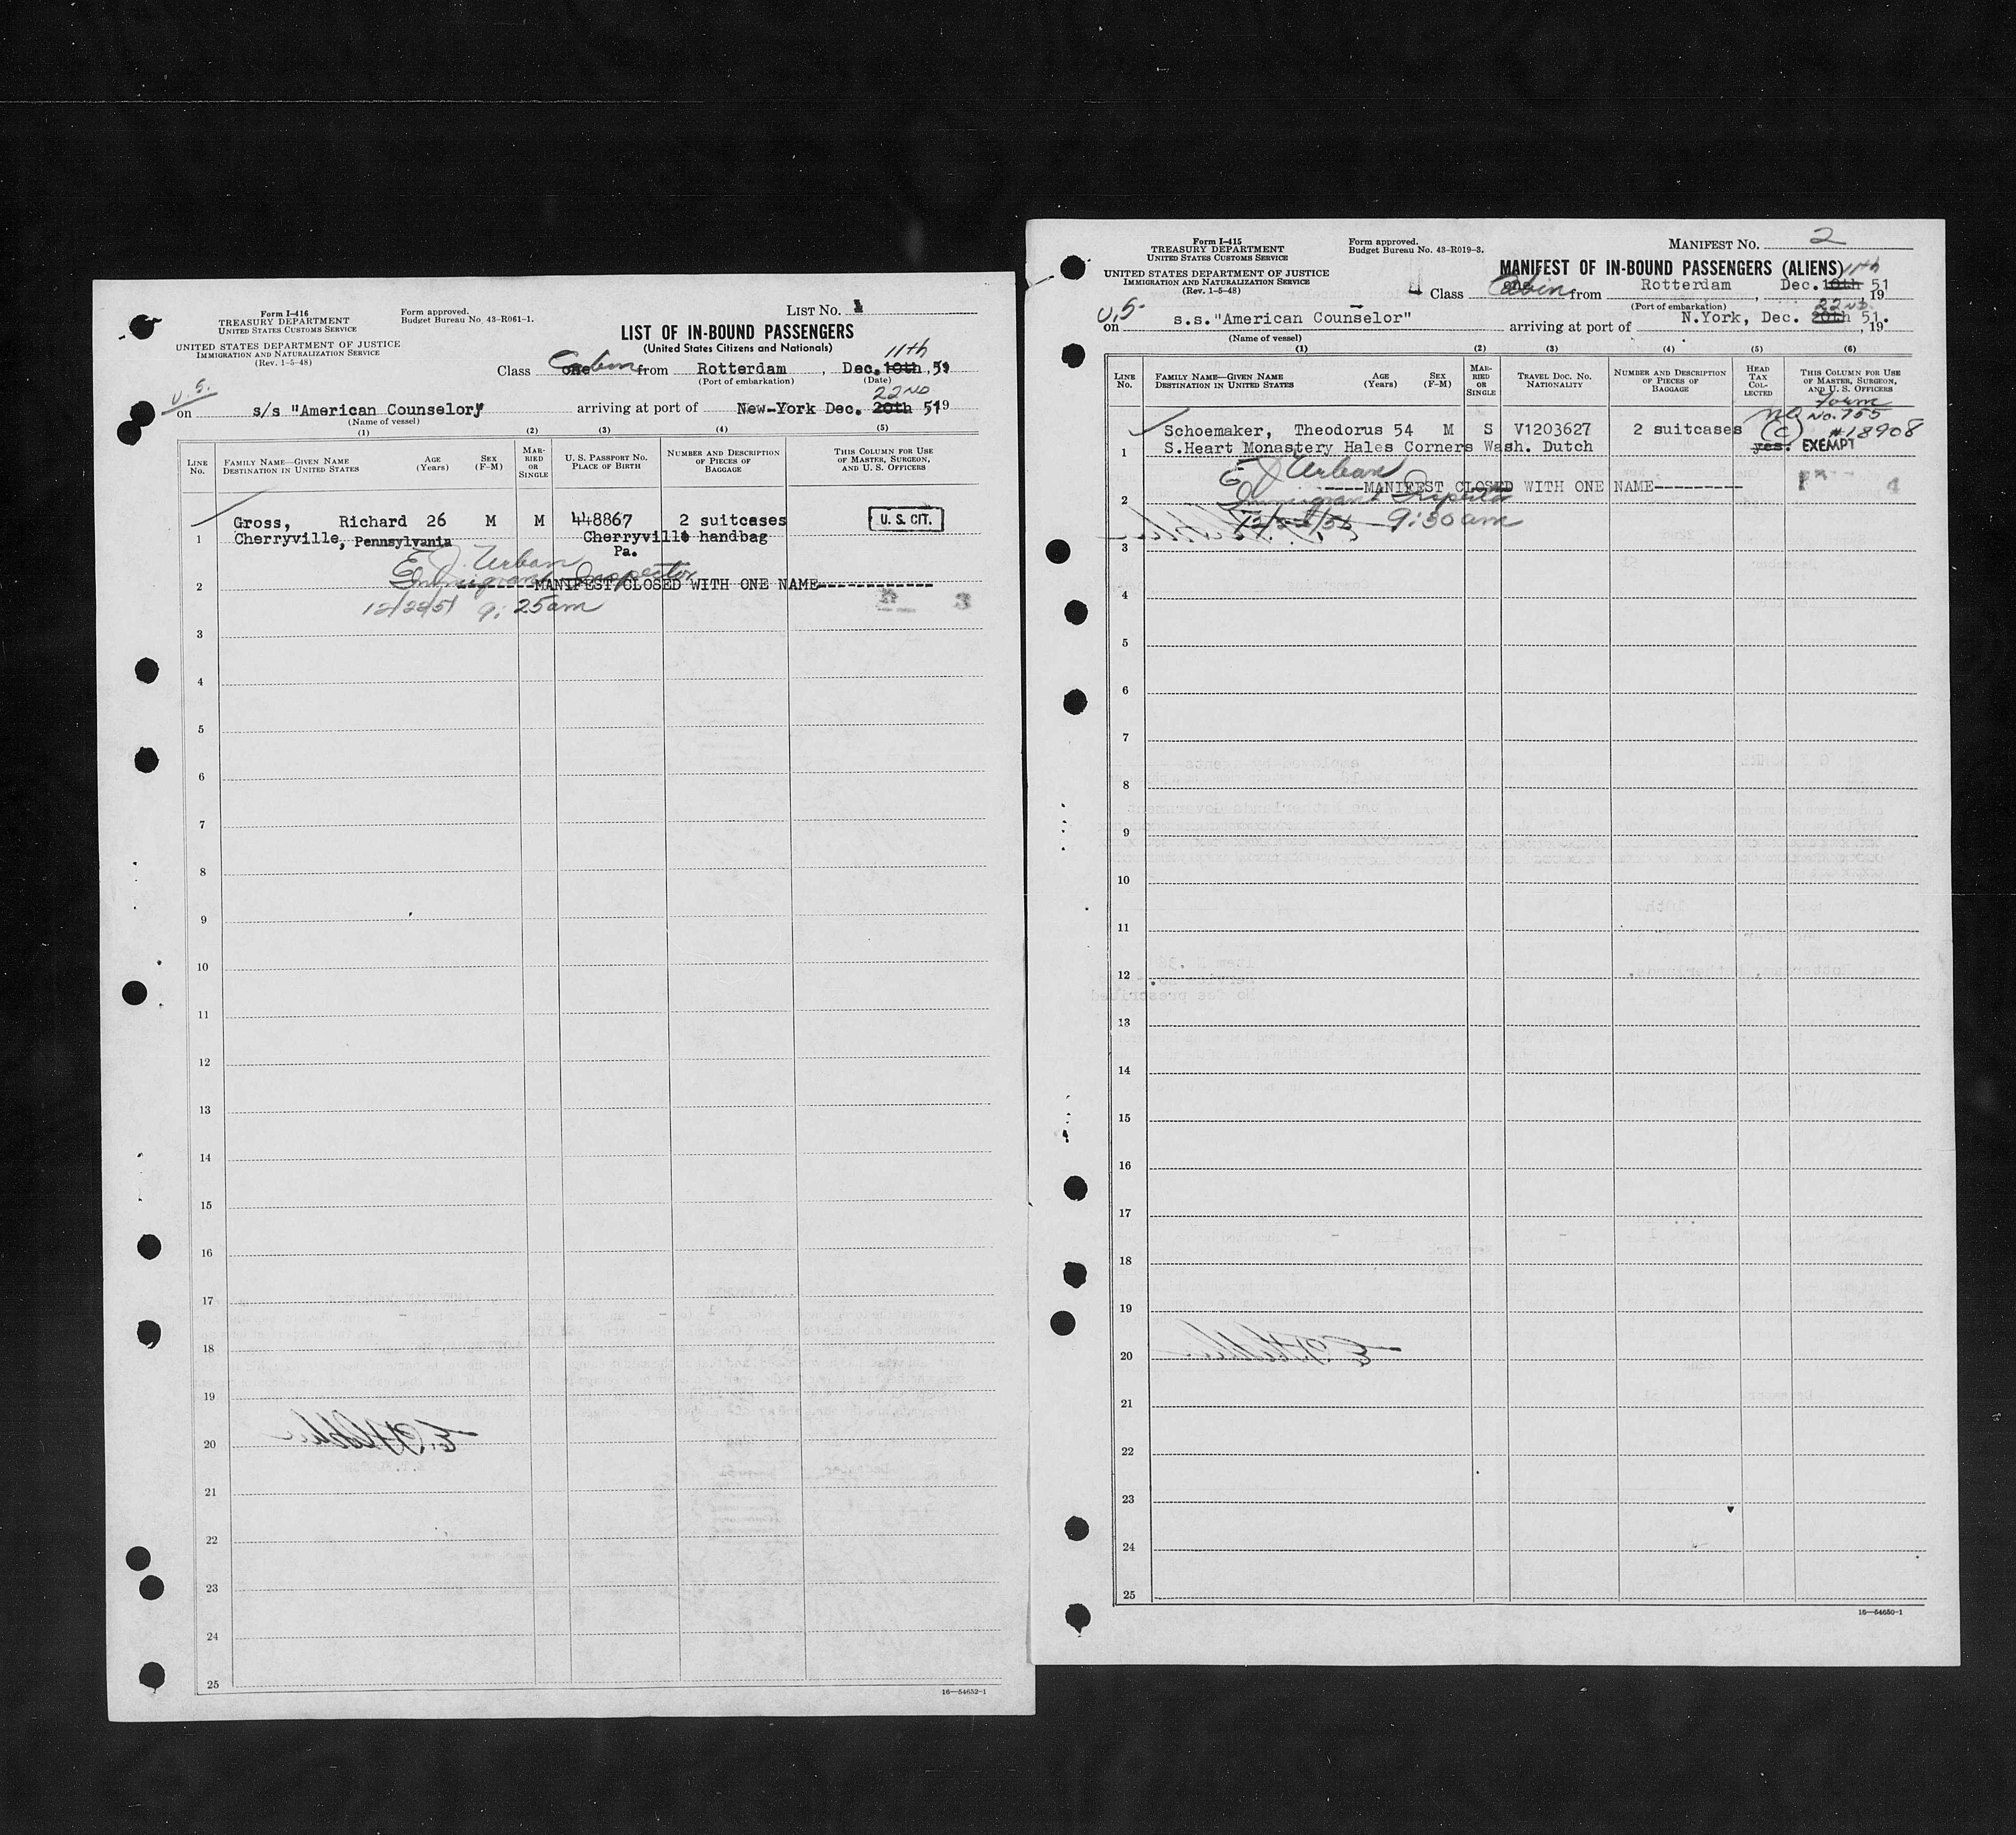 Form I-416
TREASURY DEPARTMENT
UNITED STATES CUSTOMS SERVICE
UNITED STATES DEPARTMENT OF JUSTICE
IMMIGRATION AND NATURALIZATION SERVICE
(Rev. 1-5-48)
Form approved.
Budget Bureau No 43-R061-1.
LIST No. 1
LIST OF IN-BOUND PASSENGERS
(United States Citizens and Nationals)
Class one Cabin from Rotterdam, Dec. 10th 11th, 51
(Port of embarkation) (Date)
U.S.
on s/s "American Counselor" arriving at port of New-York Dec. 20th 22ND 51 19
(Name of vessel)
(1) (2) (3) (4) (5)
LINE No. FAMILY NAME—GIVEN NAME DESTINATION IN UNITED STATES AGE (Years) SEX (F-M) MARRIED OR SINGLE U. S. PASSPORT NO. PLACE OF BIRTH NUMBER AND DESCRIPTION OF PIECES OF BAGGAGE THIS COLUMN FOR USE OF MASTER, SURGEON, AND U. S. OFFICERS
Gross, Richard 26 M M 448867 2 suitcases U. S. CIT.
1 Cherryville, Pennsylvania Cherryville handbag
Pa.
E J. Urban
Immigrant Inspector
2 MANIFEST CLOSED WITH ONE NAME
12/22/51 9:25am
3
4
5
6
7
8
9
10
11
12
13
14
15
16
17
18
19
20
21
22
23
24
25
16—54652-1
Form I-415
TREASURY DEPARTMENT
UNITED STATES CUSTOMS SERVICE
UNITED STATES DEPARTMENT OF JUSTICE
IMMIGRATION AND NATURALIZATION SERVICE
(Rev. 1-5-48)
Form approved.
Budget Bureau No. 43-R019-3.
MANIFEST No. 2
MANIFEST OF IN-BOUND PASSENGERS (ALIENS)
Class one Cabin from Rotterdam, Dec. 10th 11th 51 19
(Port of embarkation)
U.S.
on s.s. "American Counselor" arriving at port of N.York, Dec. 20th 22ND 51. , 19
(Name of vessel)
(1) (2) (3) (4) (5) (6)
LINE No. FAMILY NAME—GIVEN NAME DESTINATION IN UNITED STATES AGE (Years) SEX (F-M) MARRIED OR SINGLE TRAVEL DOC. NO. NATIONALITY NUMBER AND DESCRIPTION OF PIECES OF BAGGAGE HEAD TAX COLLECTED THIS COLUMN FOR USE OF MASTER, SURGEON, AND U. S. OFFICERS
Form
NQ No. 755
Schoemaker, Theodorus 54 M S V1203627 2 suitcases (C) #18908
1 S.Heart Monastery Hales Corners Wash. Dutch yes. EXEMPT
E J Urban
-----MANIFEST CLOSED WITH ONE NAME---------
2 Immigrant Inspector
9:30am
3
4
5
6
7
8
9
10
11
12
13
14
15
16
17
18
19
20
21
22
23
24
25
16—54650-1